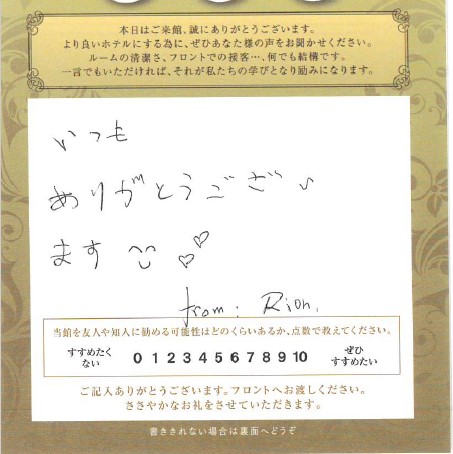 本日はご来館、誠にありがとうございます。
より良いホテルにする為に、ぜひあなた様の声をお聞かせください。
ルームの清潔さ、フロントでの接客…、何でも結構です。
一言でもいただければ、それが私たちの学びとなり励みになります。
いつも
ありがとうござい
ます
from: Rion.
当館を友人や知人に勧める可能性はどのくらいあるか、点数で教えてください。
すすめたく
ない
0 1 2 3 4 5 6 7 8 9 10
ぜひ
すすめたい
ご記入ありがとうございます。フロントへお渡しください。
ささやかなお礼をさせていただきます。
書ききれない場合は裏面へどうぞ